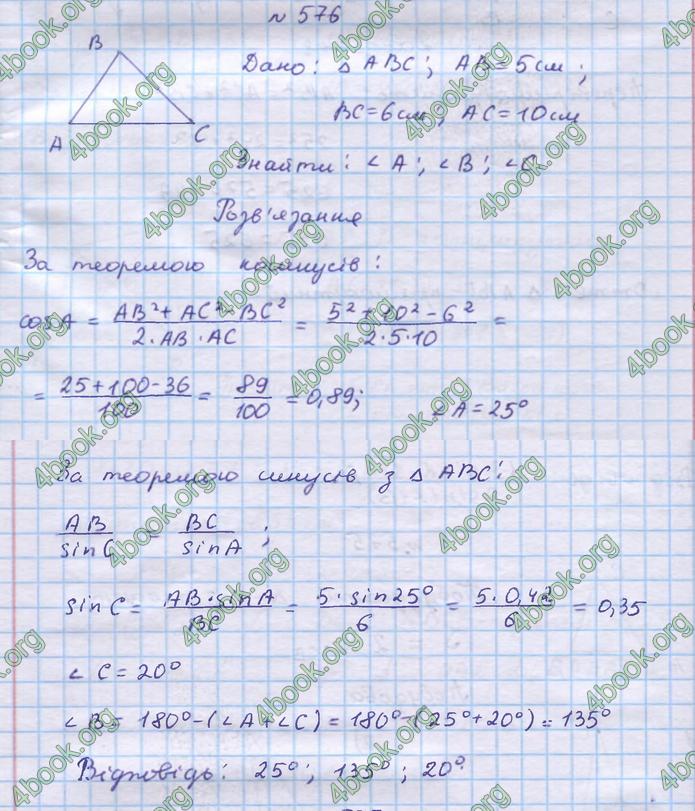 № 576
B
A
C
Дано: △ABC; AB=5см;
BC=6см; AC=10см
Знайти: ∠A; ∠B; ∠C
Розв'язання
За теоремою косинусів:
cosA = (AB²+AC²-BC²)/(2·AB·AC) = (5²+10²-6²)/(2·5·10) =
= (25+100-36)/100 = 89/100 = 0,89; ∠A=25°
За теоремою синусів з △ABC:
AB/sinC = BC/sinA;
sinC = (AB·sinA)/BC = (5·sin25°)/6 = (5·0,42)/6 = 0,35
∠C=20°
∠B = 180°-(∠A+∠C) = 180°-(25°+20°) = 135°
Відповідь: 25°; 135°; 20°
4book.org